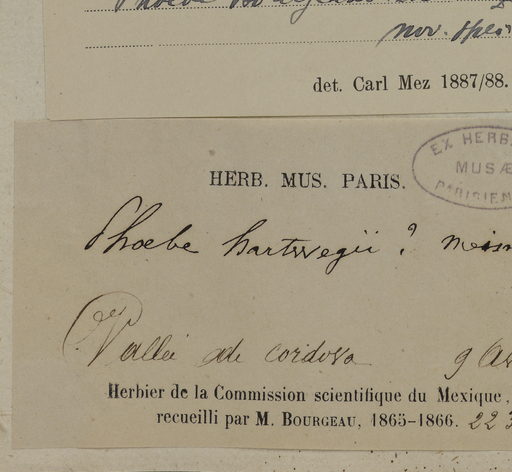 Phoebe
nov. spec.
det. Carl Mez 1887/88.
EX HERB
MUSÆ
PARISIEN
HERB. MUS. PARIS.
Phoebe hartwegii ? meisn
Vallée de cordova 9
Herbier de la Commission scientifique du Mexique,
recueilli par M. BOURGEAU, 1865-1866. 223